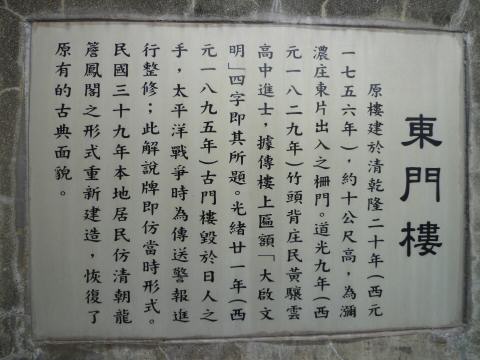 東門樓
原樓建於清乾隆二十年(西元
一七五六年),約十公尺高,為瀰
濃庄東片出入之柵門。道光九年(西
元一八二九年)竹頭背庄民黃驤雲
高中進士,據傳樓上區額「大啟文
明」四字即其所題。光緒廿一年(西
元一八九五年)古門樓毀於日人之
手,太平洋戰爭時為傳送警報進
行整修;此解說牌即仿當時形式。
民國三十九年本地居民仿清朝龍
簷鳳閣之形式重新建造,恢復了
原有的古典面貌。